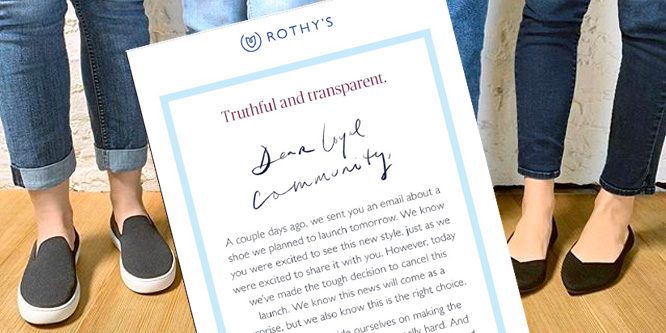 ROTHY'S
Truthful and transparent.
Dear loyal
community,
A couple days ago, we sent you an email about a
shoe we planned to launch tomorrow. We know
you were excited to see this new style, just as we
were excited to share it with you. However, today
we've made the tough decision to cancel this
launch. We know this news will come as a
prise, but we also know this is the right choice.
ide ourselves on making the
ally hard. And